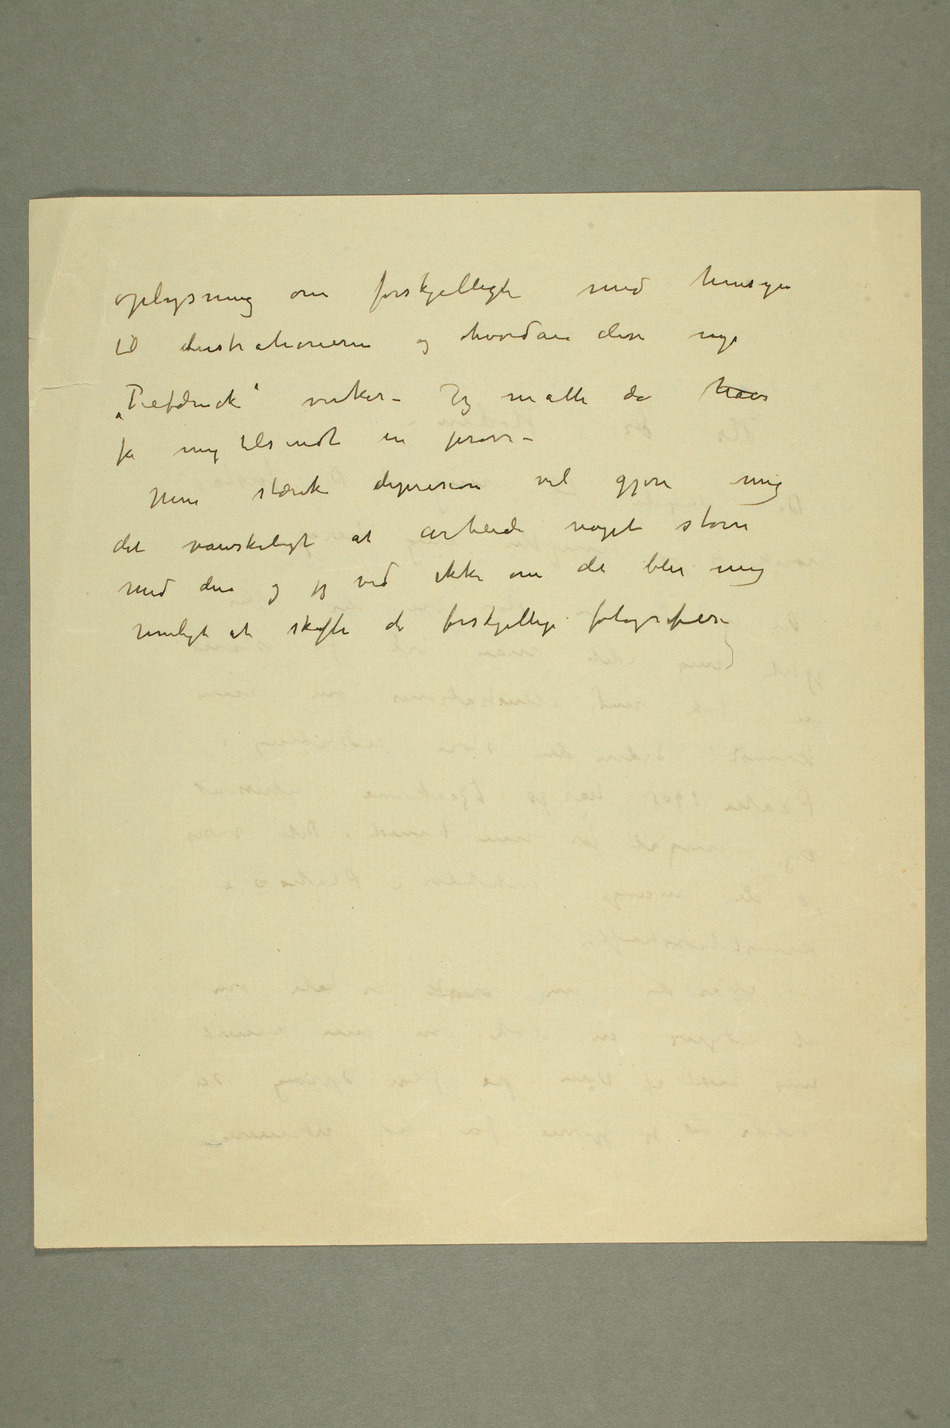 oplysning om forskjelligt med hensyn
til illustrationerne og hvordan den nye
„Tiefdruck“ virker – Jeg måtte da have
få mig tilsendt en prøve –
Min stærke depresion vil gjøre mig
det vanskeligt at arbeide noget større
med den og jeg ved ikke om det blir mig
muligt at skaffe de forskjellige fotografier –